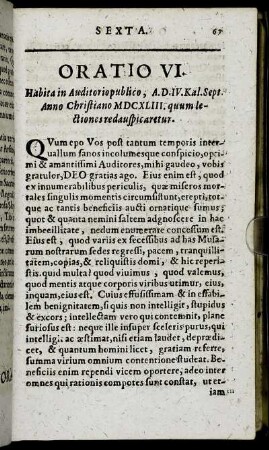 SEXTA. 67
ORATIO VI.
Habita in Auditorio publico, A.D.IV.Kal.Sept.
Anno Christiano MDCXLIII. quum le-
ctiones redauspicaretur.
QVum ego Vos post tantum temporis inter-
vallum sanos incolumesque conspicio, opti-
mi & amantissimi Auditores, mihi gaudeo, vobis
gratulor, DEO gratias ago. Eius enim est, quod
ex innumerabilibus periculis, quæ miseros mor-
tales singulis momentis circumsistunt, erepti, tot-
que ac tantis beneficiis aucti ornatique sumus;
quot & quanta nemini saltem adgnoscere in hac
imbecillitate, nedum enumerare concessum est.
Eius est, quod variis ex secessibus ad has Musa-
rum nostrarum sedes regressi, pacem, tranquilli-
tatem, copias, & reliquistis domi, & hic reperi-
stis. quid multa? quod vivimus, quod valemus,
quod mentis atque corporis viribus utimur, eius,
inquam, eius est. Cuius effusissimam & in effabi-
lem benignitatem, si quis non intelligit, stupidus
& excors; intellectam vero qui contemnit, plane
furiosus est: neque ille insuper sceleris purus, qui
intelligit ac æstimat, nisi etiam laudet, deprædi-
cet, & quantum homini licet, gratiam referre,
summa virium omnium contentione studeat. Be-
neficiis enim rependi vicem oportere, adeo inter
omnes qui rationis compotes sunt constat, ut et-
iam